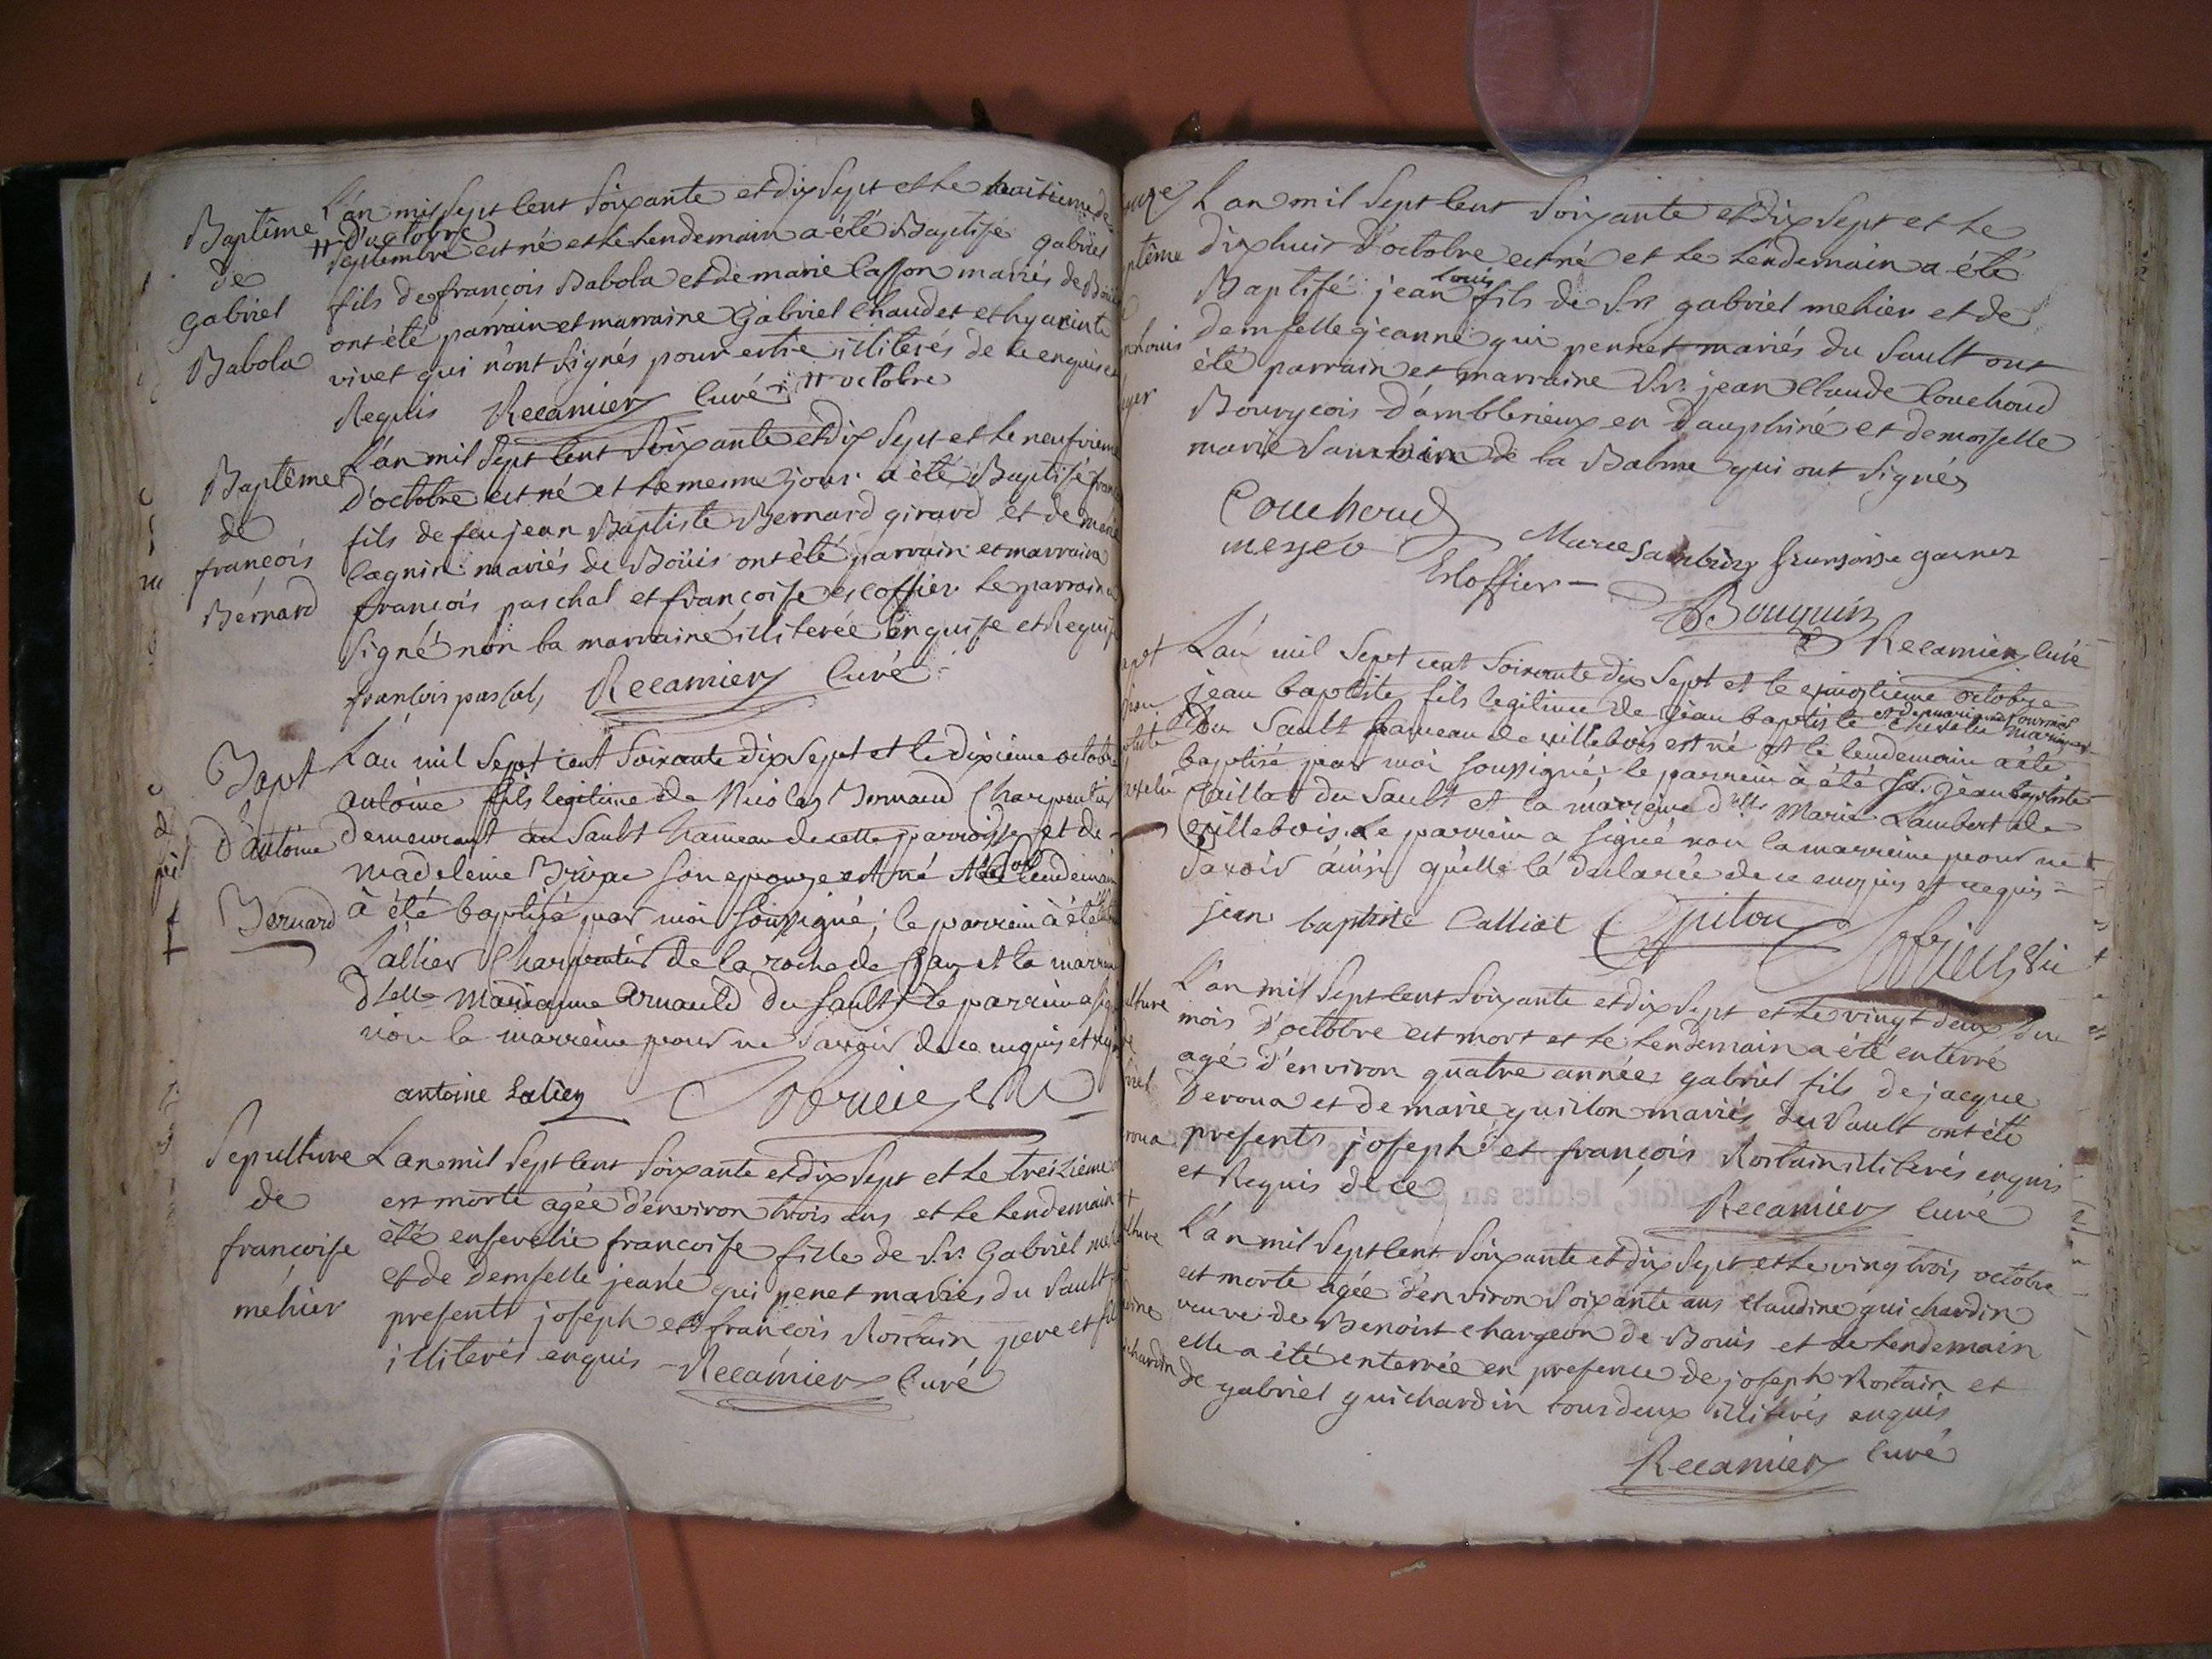 Baptême
de
gabriel
Babola
L'an mil sept cent soixante et dix sept et le huitieme de
# d'octobre
septembre est né et le lendemain a été Baptisé gabriel
fils de françois Babola et de marie Casson mariés de Bouis
ont été parrain et marraine Gabriel Chaudet et hyacinte
vivet qui n'ont signés pour estre illiterés de ce enquis et
Requis Recamier Curé # octobre
Baptême
de
françois
Bérnard
L'an mil sept cent soixante et dix sept et le neufvieme
D'octobre est né et le meme jour a été Baptisé
fils de feu jean Baptiste Bernard girard et de marie
cagnin mariés de Boüis ont été parrain et marraine
françois paschal et françoise escoffier le parrain a
signé non la marraine illiterée enquise et Requise
francois pascal Recamier Curé
Bapt
d'antoine
Bernard
L'an mil sept cent soixante dix sept et le dixieme octobre
antoine fils legitime de Nicolas Bernard Charpentier
demeurant au Sault hameau de cette parroisse et de
madeleine son epouze est né et le lendemain
à été baptisé par moi soussigné; le parrein à été
Lallier Charpentier de la roche de et la marreine
d'elle Marianne Arnauld du Sault le parrein a signé
non la marreine pour ne savoir de ce enquis et requis
antoine Lalier
Sepulture
de
françoise
méhier
L'an mil sept cent soixante et dix sept et le treizieme
est morte agée d'environ trois ans et le lendemain
été ensevelie françoise fille de Sr. Gabriel
et de demselle jeane qui penet mariés du Sault
presents joseph et françois Rostain pere et fils
illiterés enquis Recamier Curé
L'an mil sept cent soixante et dix sept et le
dix huit d'octobre est né et le lendemain a été
louis
Baptisé jean fils de Sr. gabriel mehier et de
demselle jeanne qui pennet mariés du Sault ont
été parrain et marraine Sr. jean Claude Couchoud
Bourgeois d'amblerieux en Dauphiné et demoiselle
marie de la Balme qui ont signés
Couchoud
Marie garnier
Escoffier
Bouquin
Recamier Curé
L'an mil sept cent soixante dix sept et le vingtieme octobre
jean baptiste fils legitime de jean baptiste
du Sault hameau de villebois est né et le lendemain a été
baptisé par moi soussigné; le parrein à été Sr. jean baptiste
Caillat du Sault et la marreine d'elle Marie Lambert de
villebois. Le parrein a signé non la marreine pour ne
savoir ainsi qu'elle l'a declarée de ce enquis et requis
jean baptiste Calliat
L'an mil sept cent soixante et dix sept et le vingt deux du
mois d'octobre est mort et le lendemain a été enterré
agé d'environ quatre années gabriel fils de jacque
Deroua et de marie guillon mariés du Sault ont été
presents joseph et françois Rostain illiterés enquis
et Requis de ce
Recamier Curé
L'an mil sept cent soixante et dix sept et le ving trois octobre
est morte agée d'environ soixante ans claudine guichardin
veuve de Benoist chargeon de Bouis et le lendemain
elle a été enterrée en presence de joseph Rostain et
de gabriel guichardin tous deux illiterés enquis
Recamier Curé